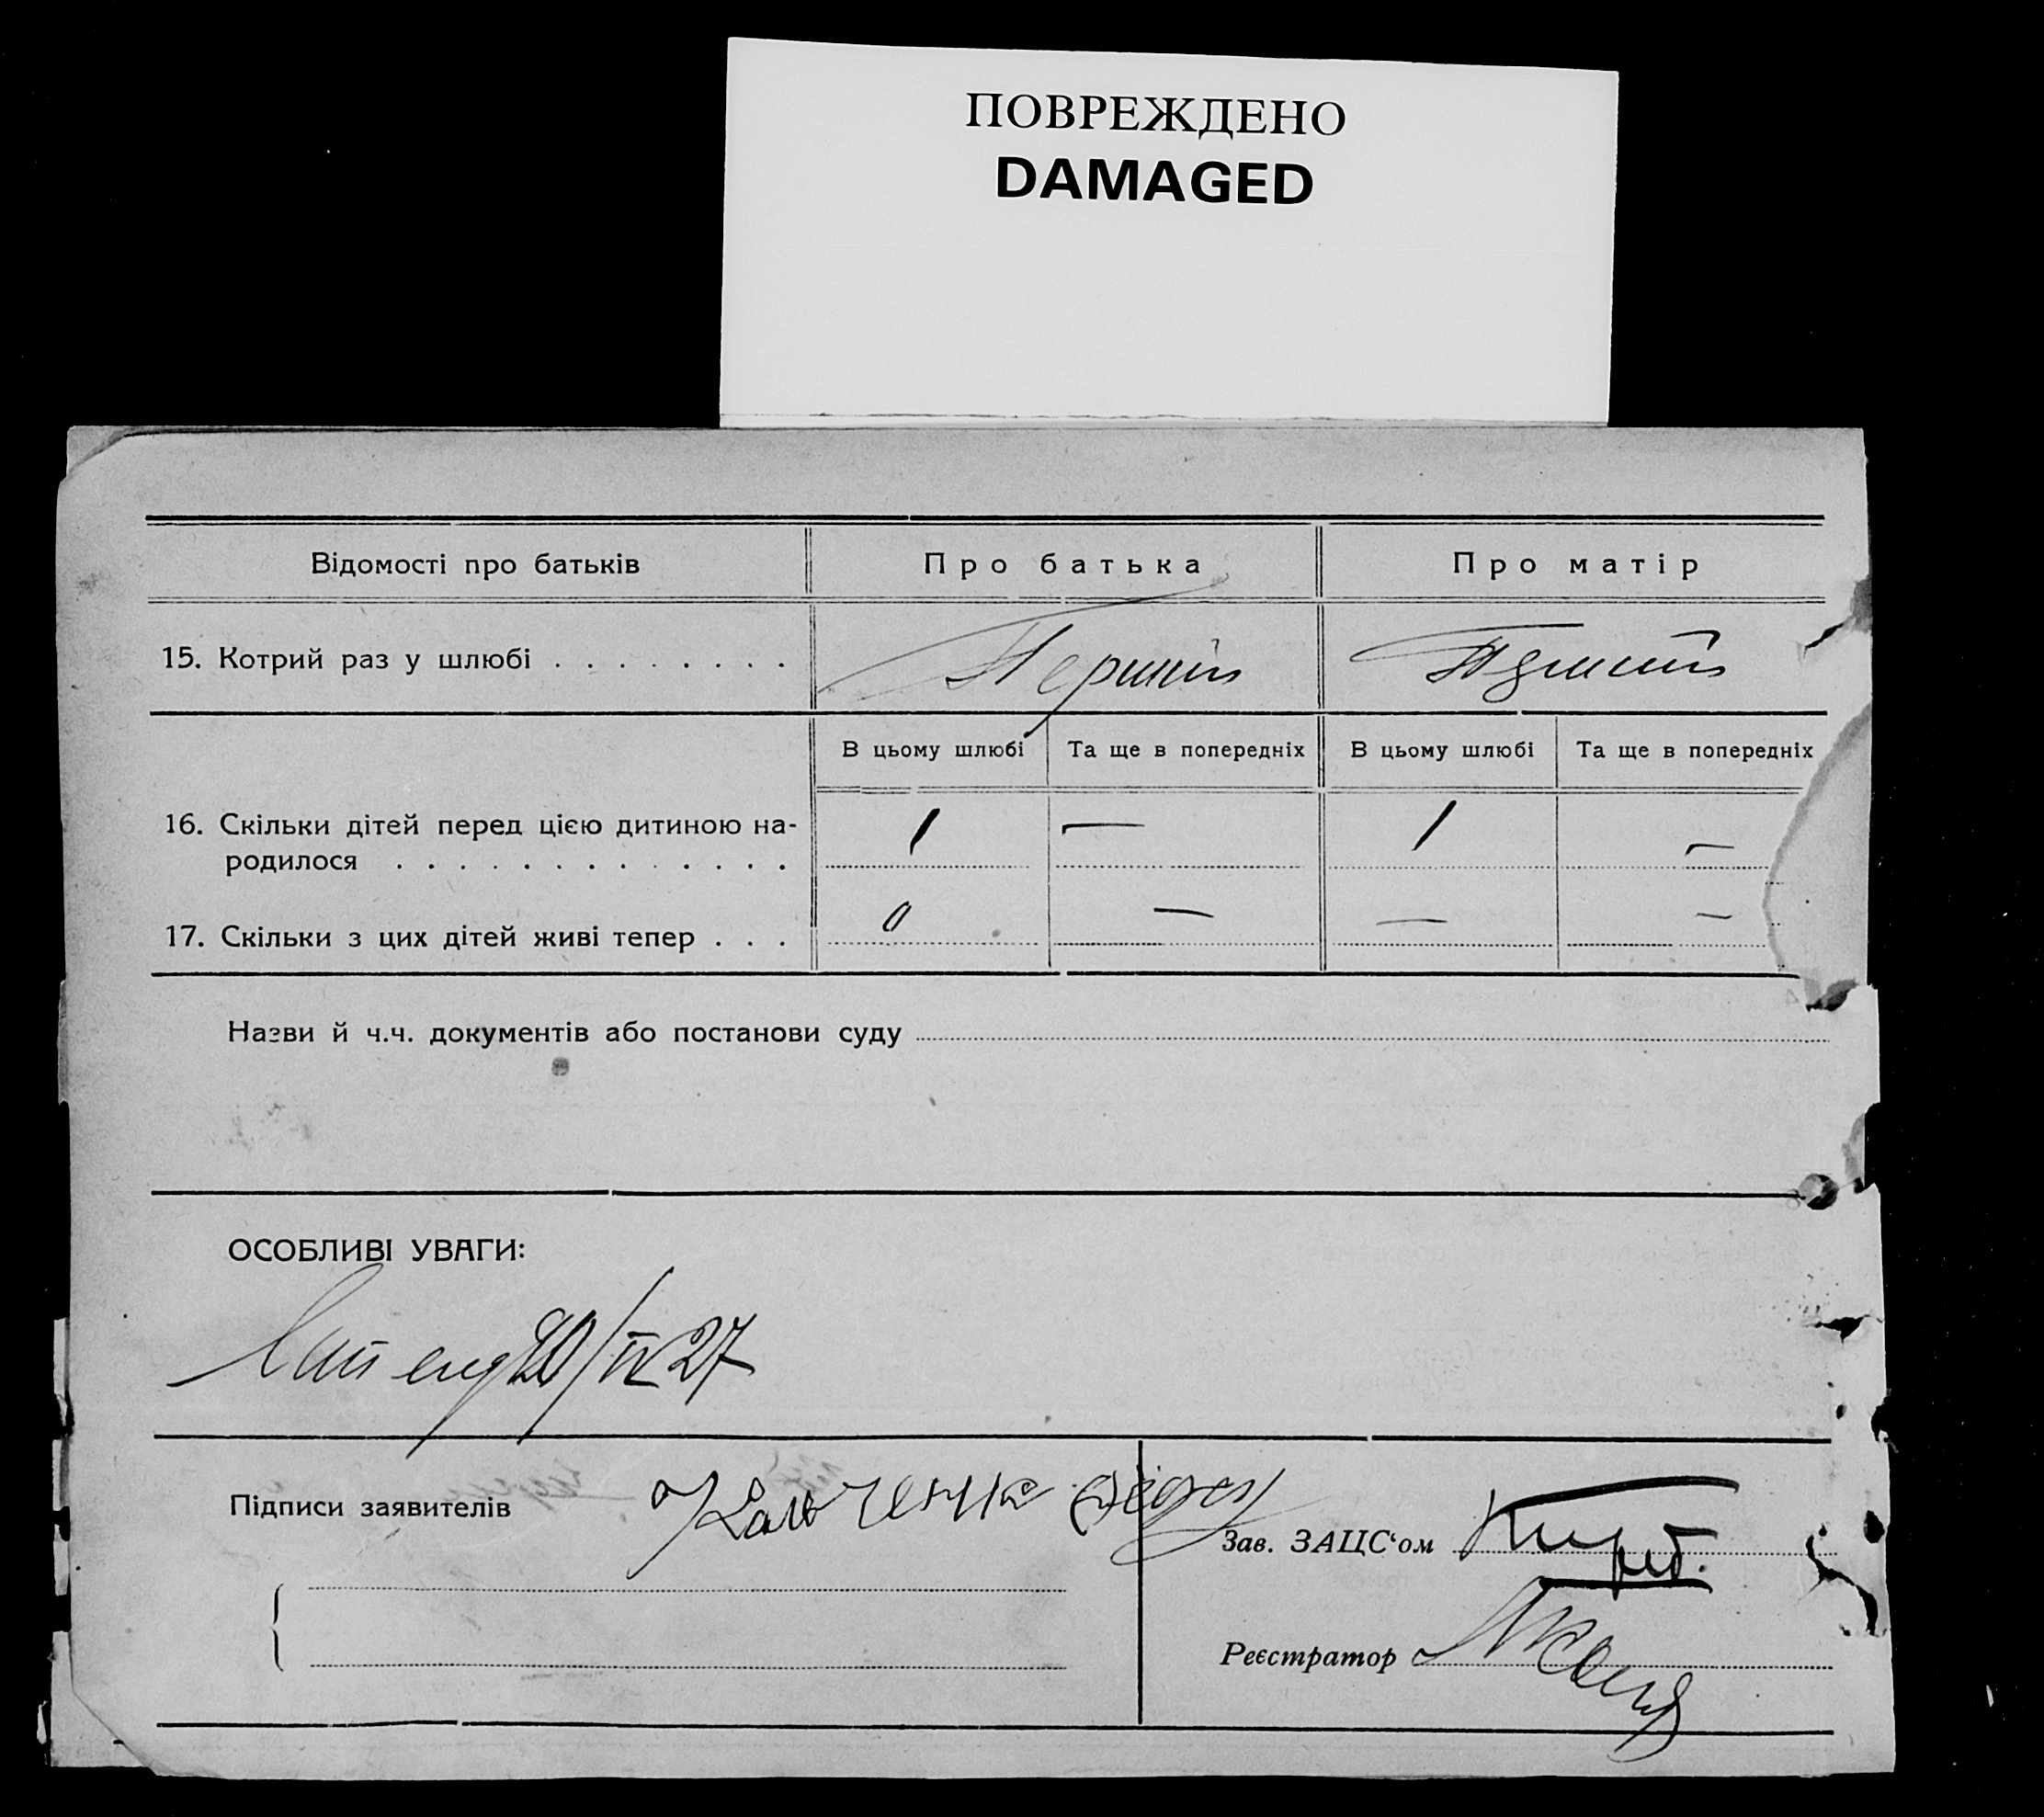 ПОВРЕЖДЕНО
DAMAGED
Відомості про батьків
Про батька
Про матір
15. Котрий раз у шлюбі . . . . . . . .
Перший
Перший
В цьому шлюбі
Та ще в попередніх
В цьому шлюбі
Та ще в попередніх
16. Скільки дітей перед цією дитиною на-
родилося . . . . . . . . . . . . .
1 — 1 —
17. Скільки з цих дітей живі тепер . . .
0 — — —
Назви й ч.ч. документів або постанови суду
ОСОБЛИВІ УВАГИ:
20/IV 27
Підписи заявителів
Зав. ЗАЦС‘ом
Реєстратор